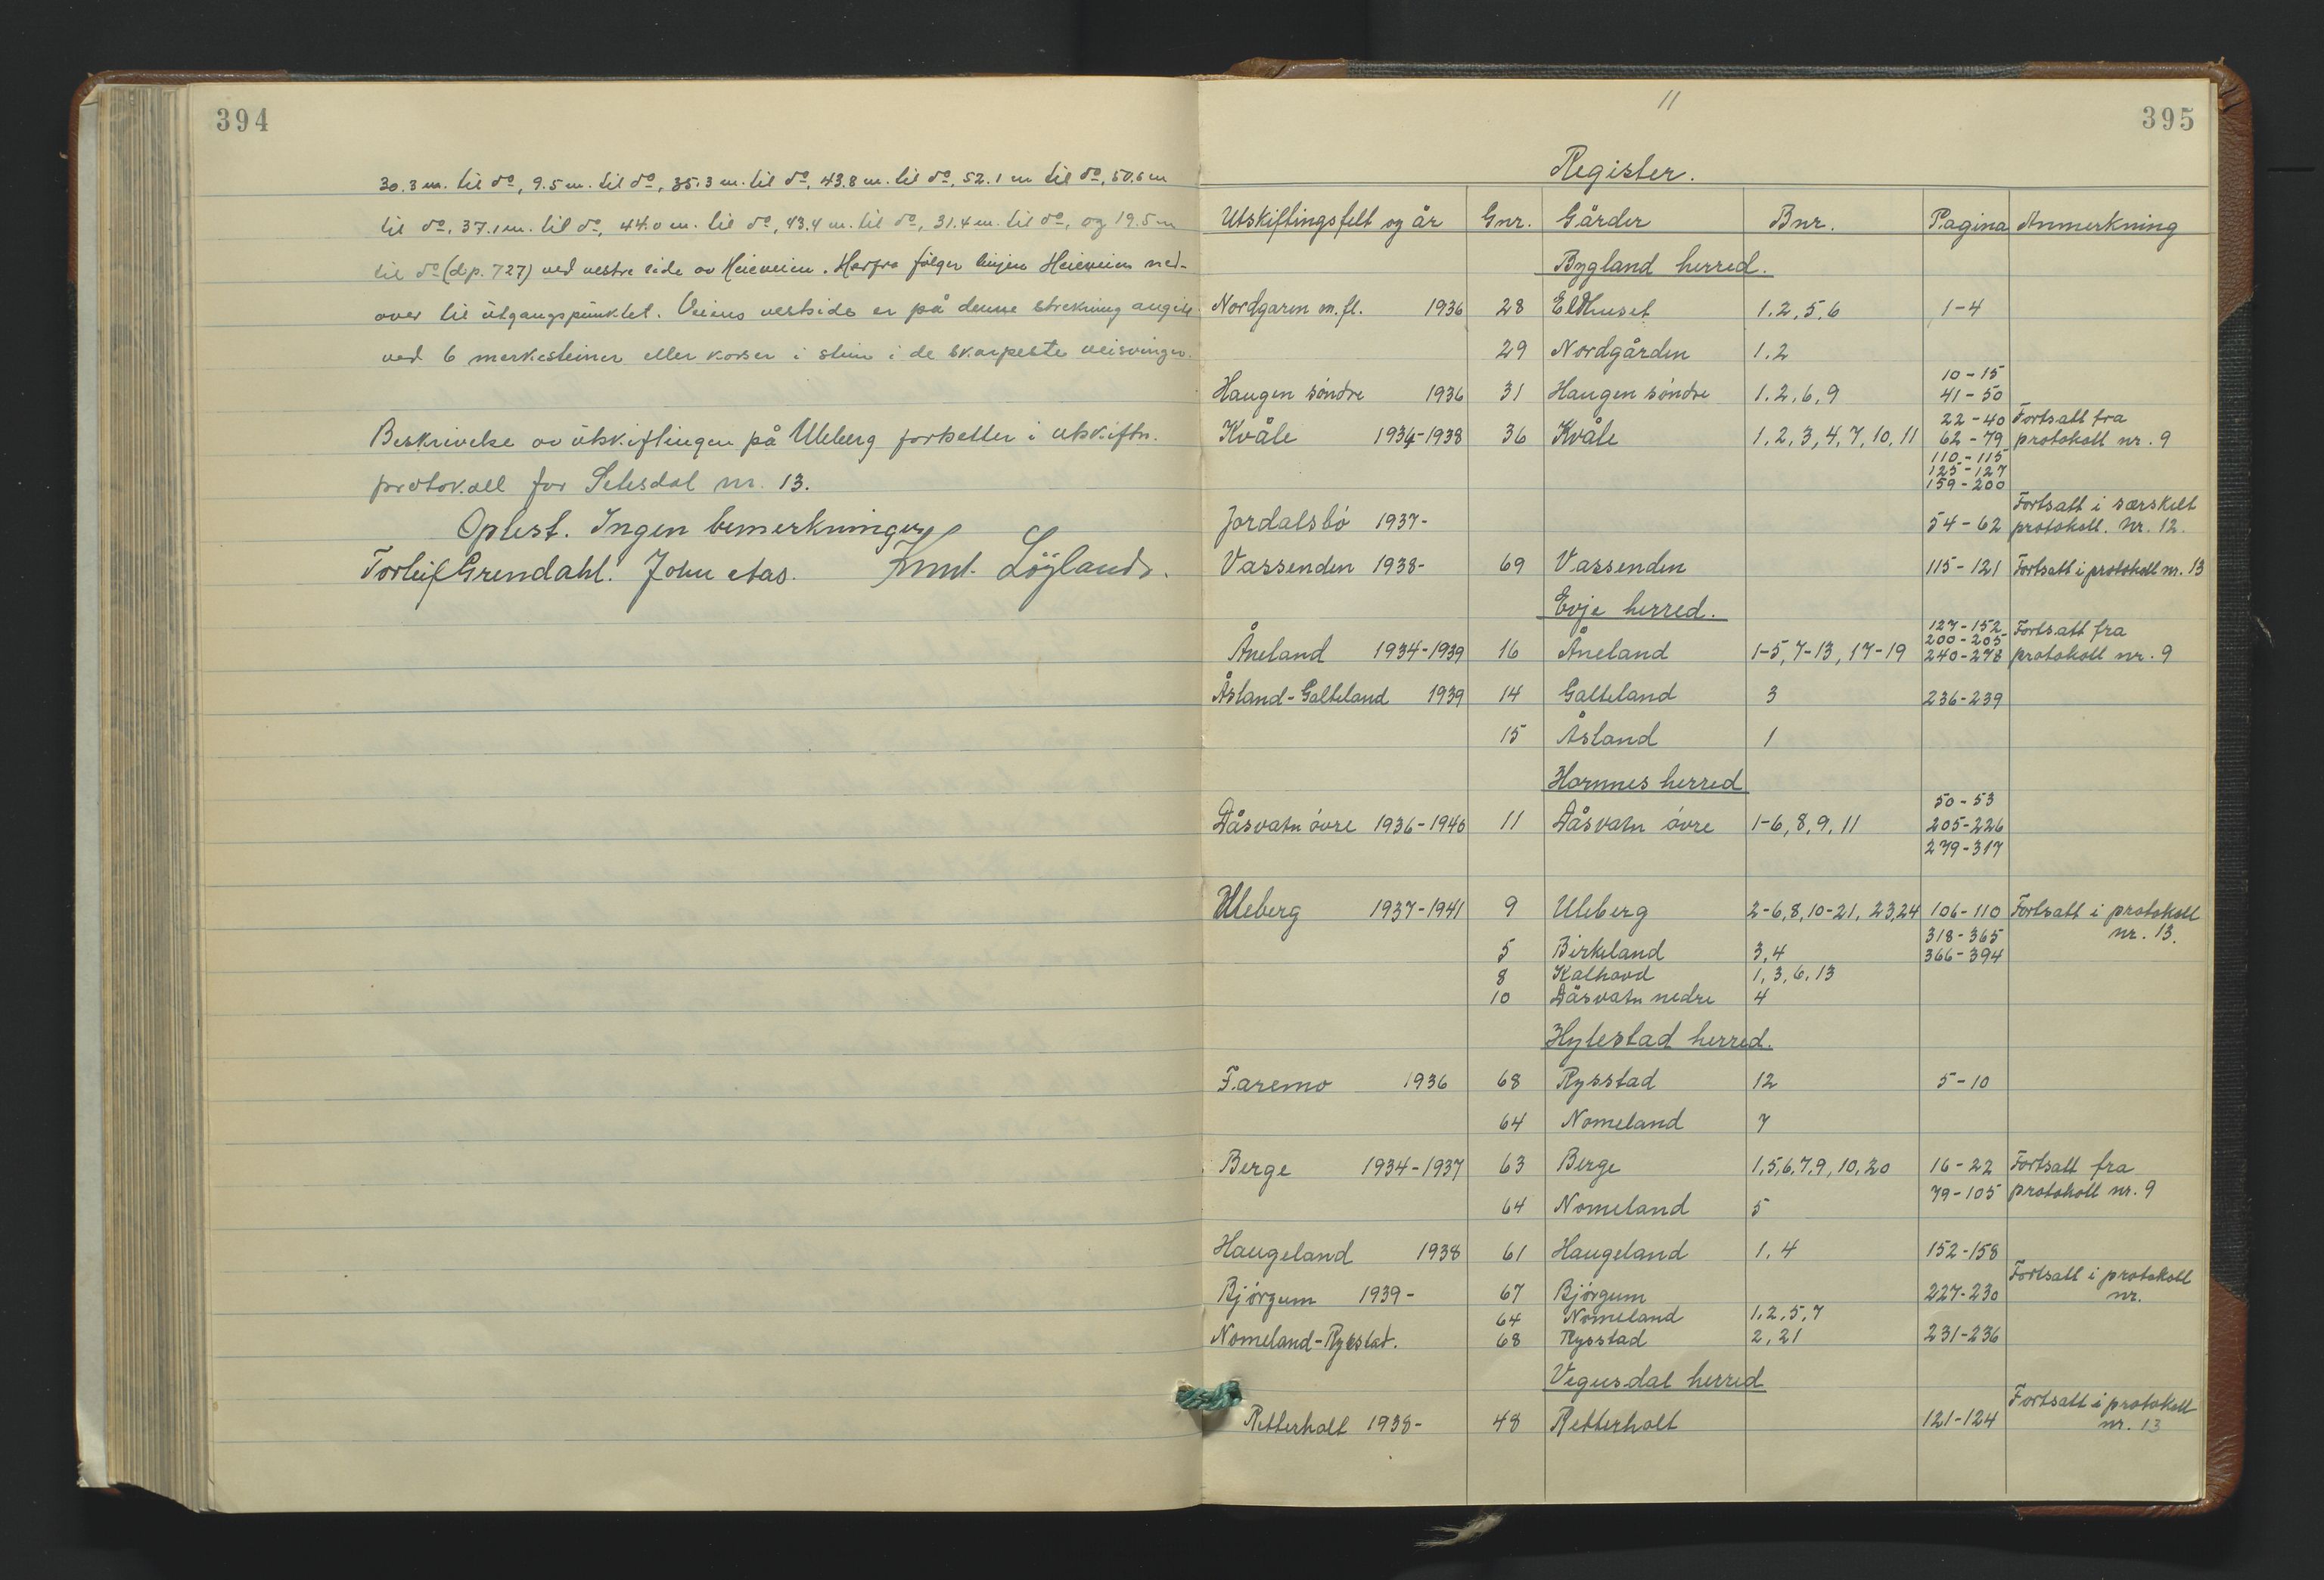 394
30.3 m. til do, 9.5 m. til do, 35.3 m. til do, 43.8 m. til do, 52.1 m til do, 50.6 m
til do, 37.1 m. til do, 44.0 m. til do, 43.4 m. til do, 31.4 m. til do, og 19.5 m
til do (dp. 727) ved vestre side av Heieveien. Herfra følger linjen Heieveien ned-
over til utgangspunktet. Veiens vestside er på denne strekning angitt
ved 6 merkesteiner eller korser i stein i de skarpeste veisvinger.
Beskrivelse av utskiftingen på Uleberg fortsetter i utskiftn.
protokoll for Setesdal nr. 13.
Oplest. Ingen bemerkninger
Torleif Grendahl. John Aas. Knut Löyland.
11
395
Register.
Utskiftingsfelt og år Gnr. Gårder Bnr. Pagina Anmerkning
Bygland herred.
Nordgaren m.fl. 1936 28 Eldhuset 1.2,5,6 1-4
29 Nordgården 1,2
10-15
Haugen söndre 1936 31 Haugen söndre 1.2,6,9 41-50
22-40 Fortsatt fra
Kvåle 1934-1938 36 Kvåle 1,2,3,4,7,10,11 62-79 protokoll nr. 9
110-115
125-127
159-200
Fortsatt i særskilt
Jordalsbö 1937- 54-62 protokoll. Nr. 12.
Vassenden 1938- 69 Vassenden 115-121 Fortsatt i protokoll nr. 13
Evje herred.
127-152 Fortsatt fra
200-205
Åneland 1934-1939 16 Åneland 1-5, 7-13, 17-19 240-278 protokoll nr. 9
Åsland-Galteland 1939 14 Galteland 3 236-239
15 Åsland 1
Hornnes herred
50-53
Dåsvatn övre 1936-1940 11 Dåsvatn övre 1-6, 8, 9, 11 205-226
279-317
Uleberg 1937-1941 9 Uleberg 2-6,8,10-21, 23,24 106-110 Fortsatt i protokoll
318-365 nr. 13.
5 Birkeland 3,4 366-394
8 Kalhovd 1,3,6,13
10 Dåsvatn nedre 4
Hylestad herred.
Faremo 1936 68 Rysstad 12 5-10
64 Nomeland 7
Berge 1934-1937 63 Berge 1,5,6,7,9,10,20 16-22 Fortsatt fra
79-105 protokoll nr. 9
64 Nomeland 5
Haugeland 1938 61 Haugeland 1,4 152-158
Fortsatt i protokoll
Björgum 1939- 67 Björgum 227-230 nr.
64 Nomeland 1,2,5,7
Nomeland-Rysstad. 68 Rysstad 2,21 231-236
Vegusdal herred
Fortsatt i protokoll
Retterholt 1938- 48 Retterholt 121-124 nr. 13